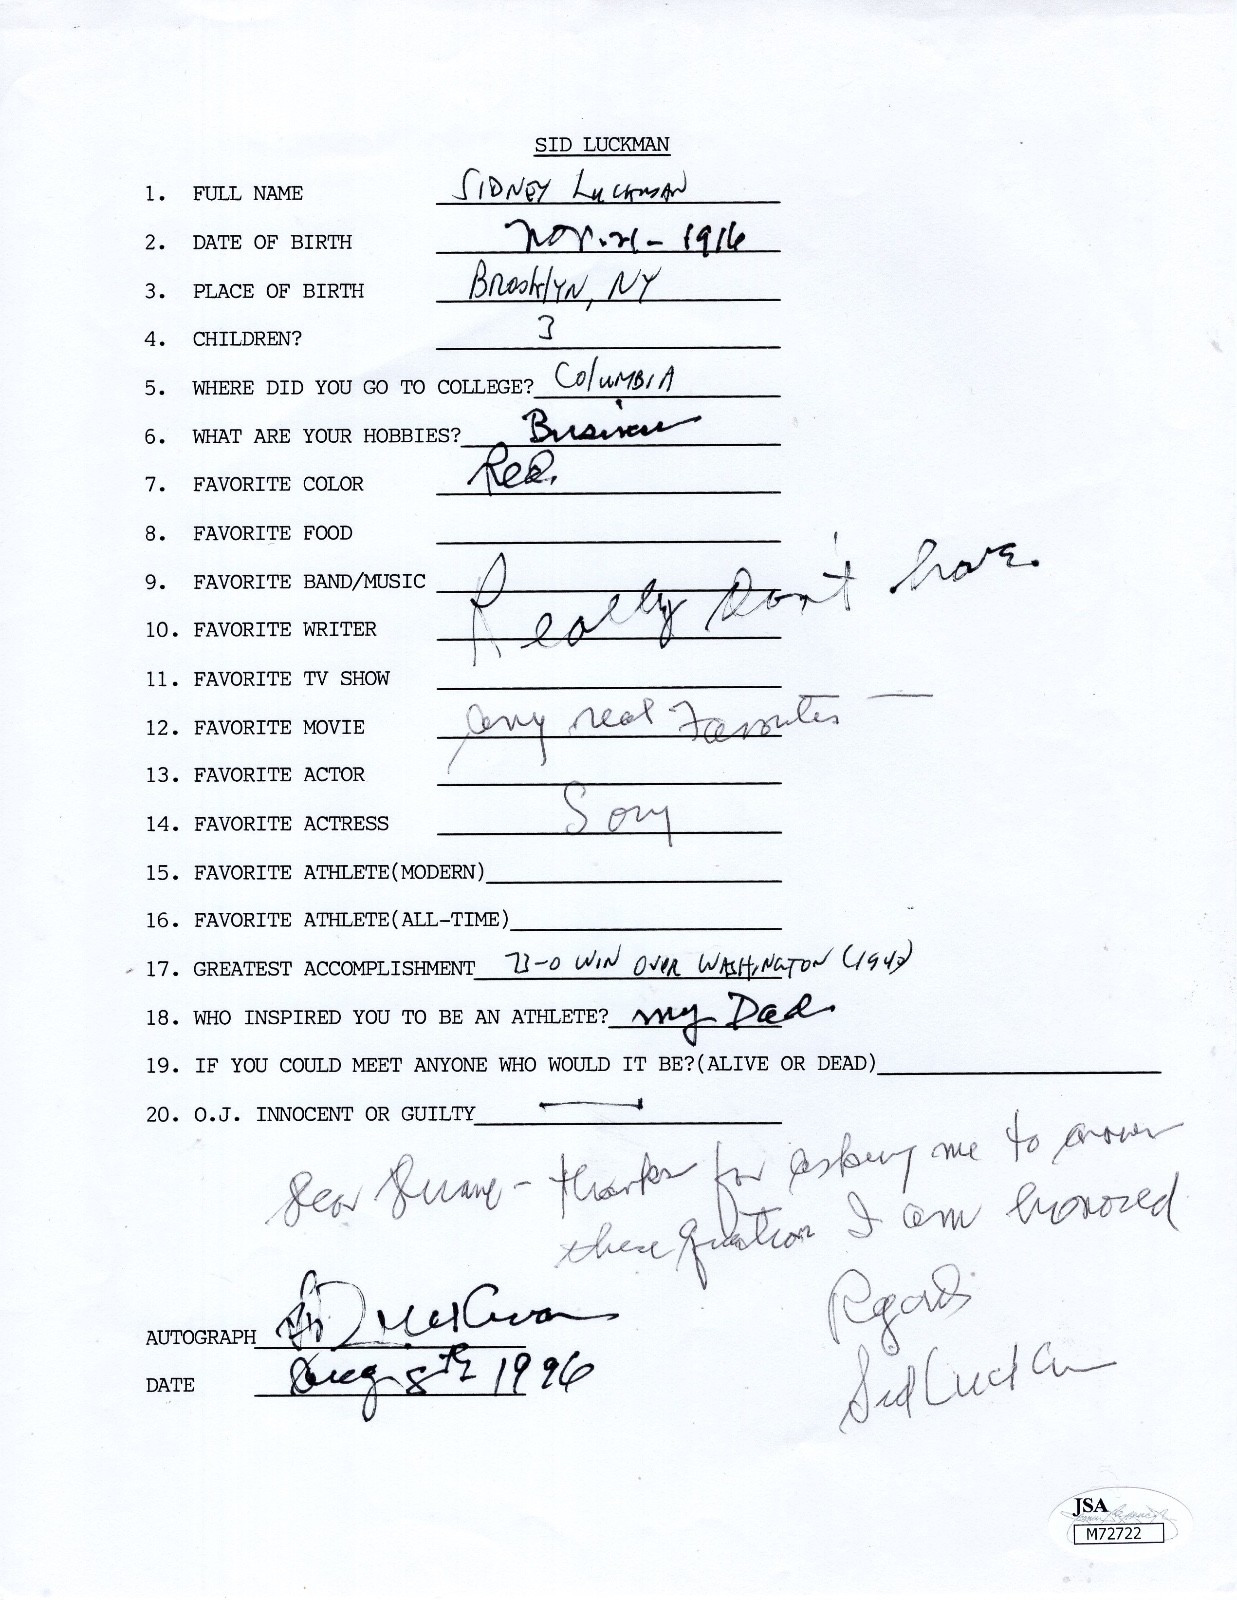 SID LUCKMAN
1. FULL NAME SIDNEY LUCKMAN
2. DATE OF BIRTH Nov. 21 - 1916
3. PLACE OF BIRTH Brooklyn, NY
4. CHILDREN? 3
5. WHERE DID YOU GO TO COLLEGE? COLUMBIA
6. WHAT ARE YOUR HOBBIES? Business
7. FAVORITE COLOR Red.
8. FAVORITE FOOD
9. FAVORITE BAND/MUSIC
Really Don't have.
10. FAVORITE WRITER
11. FAVORITE TV SHOW
12. FAVORITE MOVIE any real Favorites —
13. FAVORITE ACTOR
14. FAVORITE ACTRESS Sorry
15. FAVORITE ATHLETE(MODERN)
16. FAVORITE ATHLETE(ALL-TIME)
17. GREATEST ACCOMPLISHMENT 73-0 WIN OVER WASHINGTON (1940)
18. WHO INSPIRED YOU TO BE AN ATHLETE? my Dad.
19. IF YOU COULD MEET ANYONE WHO WOULD IT BE?(ALIVE OR DEAD)
20. O.J. INNOCENT OR GUILTY —
Dear Duane - thanks for asking me to answer
these question I am honored
Regards
Sid Luckman
AUTOGRAPH Sid Luckman
DATE Aug 8th 1996
JSA
M72722